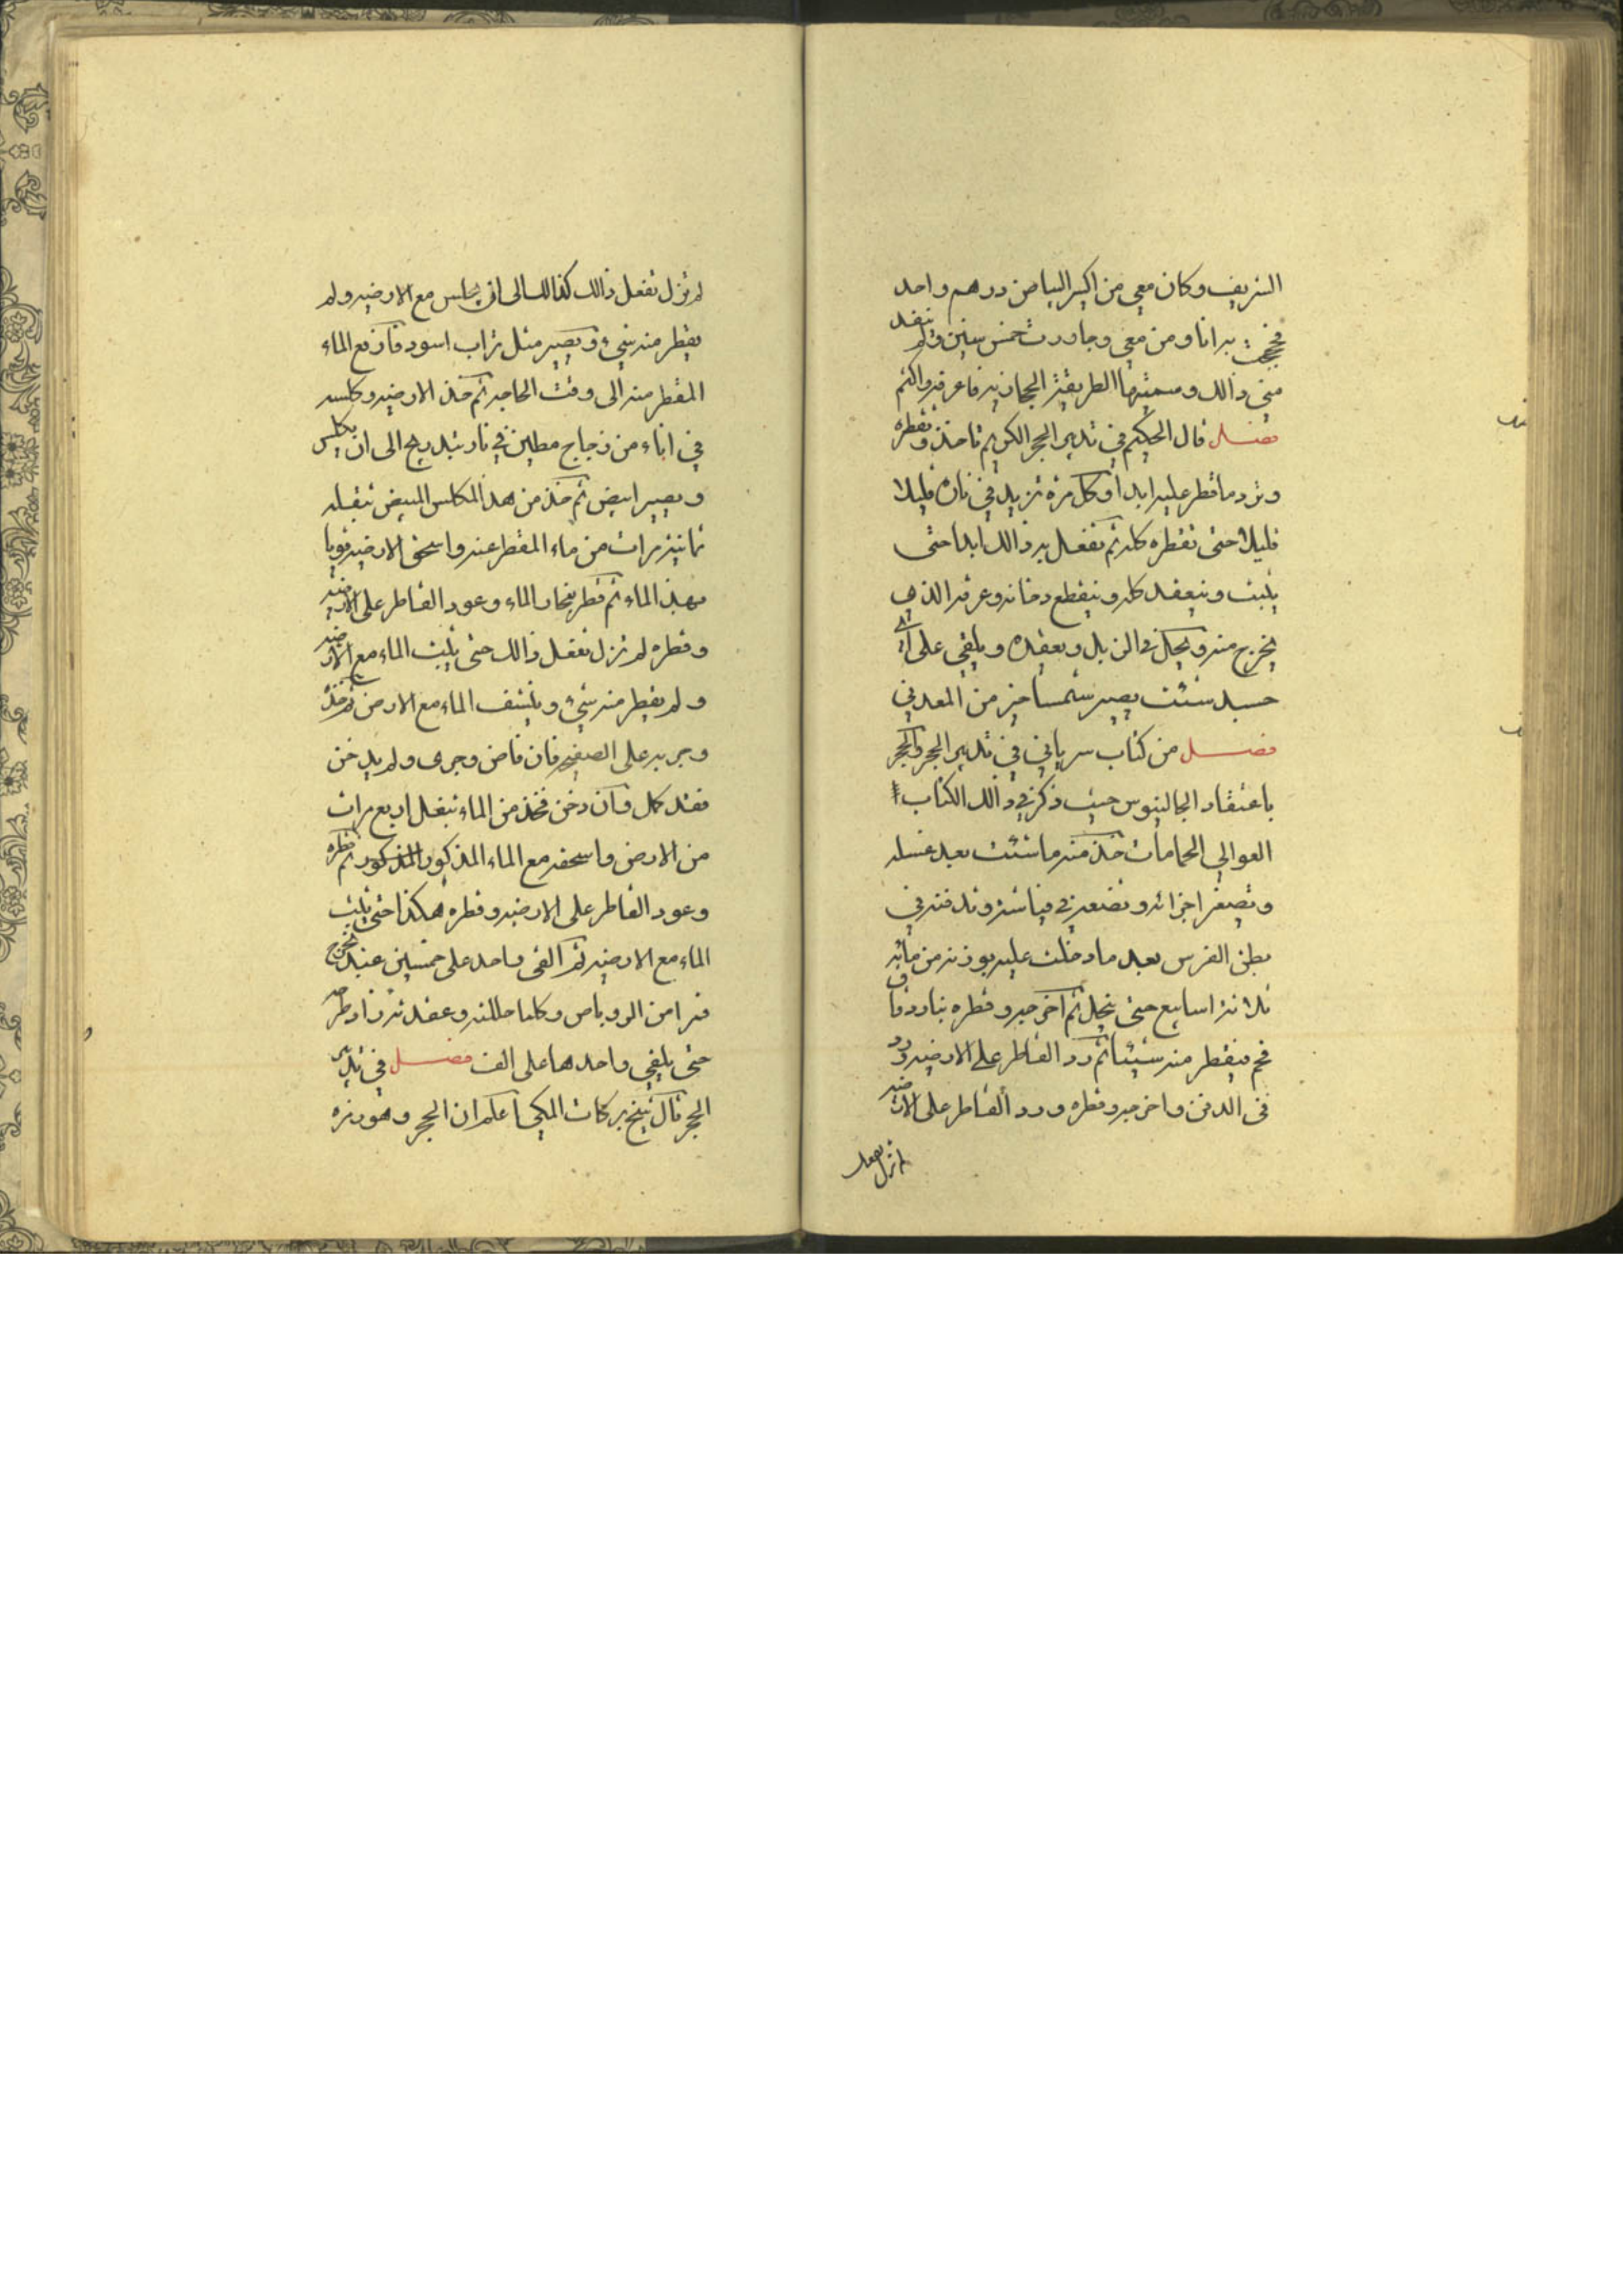 الشريف وكان معي من اكسير البياض درهم واحد
فحججت به انا ومن معي وجاورت خمس سنين ولم ينفد
مني ذالك وسميتها الطريقة الحجانية فاعرفه واكتم
فصل قال الحكيم في تدبير الحجر الكريم تاخذه وتقطره
وترد ما قطر عليه ابدا وكل مرة تزيد في ناره قليلا
قليلا حتى تقطره كله ثم تفعل به ذالك ابدا حتى
يثبت وينعقد كله وينقطع دخانه وعرقه الذي
يخرج منه ويحل في الزبل ويعقده ويلقي على اي
جسد شئت يصير شمسا خير من المعدني
فصل من كتاب سرياني في تدبير الحجر والحجر
باعتقاد الجالينوس حيث ذكر في ذالك الكتاب
العوالي الحمامات خذ منه ما شئت بعد غسله
وتصغر اجزائه وتضعه في فياشة وتدفنه في
بطن الفرس بعد ما دخلت عليه بوزنه من مائه
ثلاثة اسابيع حتى ينحل ثم اخرجه وقطره بنار دقاق
فحم فيقطر منه شيئا ثم رد القاطر على الارضيه ورد
في الدفن واخرجه وقطره ورد القاطر على الارضيه
لم تزل تفعل
لم تزل تفعل ذالك كذالك الى ان يجلس مع الارضيه ولم
يقطر منه شيء ويصير مثل تراب اسود فارفع الماء
المقطر منه الى وقت الحاجه ثم خذ الارضيه وكلسه
في اناء من زجاج مطين في نار بتدريج الى ان يكلس
ويصير ابيض ثم خذ من هذ المكلس المبيض ثقله
ثمانية مرات من ماء المقطر عنه واسحق الارضيه قويا
بهذ الماء ثم قطر بنار الماء وعود القاطر على الارضيه
وقطره لم تزل تفعل ذالك حتى يثبت الماء مع الارضيه
ولم يقطر منه شيء وينشف الماء مع الارض ثم خذ
وجربه على الصفيحه فان فاض وجرى ولم يدخن
فقد كمل وان دخن فخذ من الماء ثقل اربع مرات
من الارض واسحقه مع الماء المذكور المذكور ثم قطره
وعود القاطر على الارضيه وقطره هكذا حتى يثبت
الماء مع الارضيه ثم القى واحد على خمسين عبد يخرج
قمرا من الروباص وكلما حللته وعقدته زاد طرحه
حتى يلقي واحدها على الف فصل في تدبير
الحجر قال شيخ بركات المكي اعلم ان الحجر وهو بزره